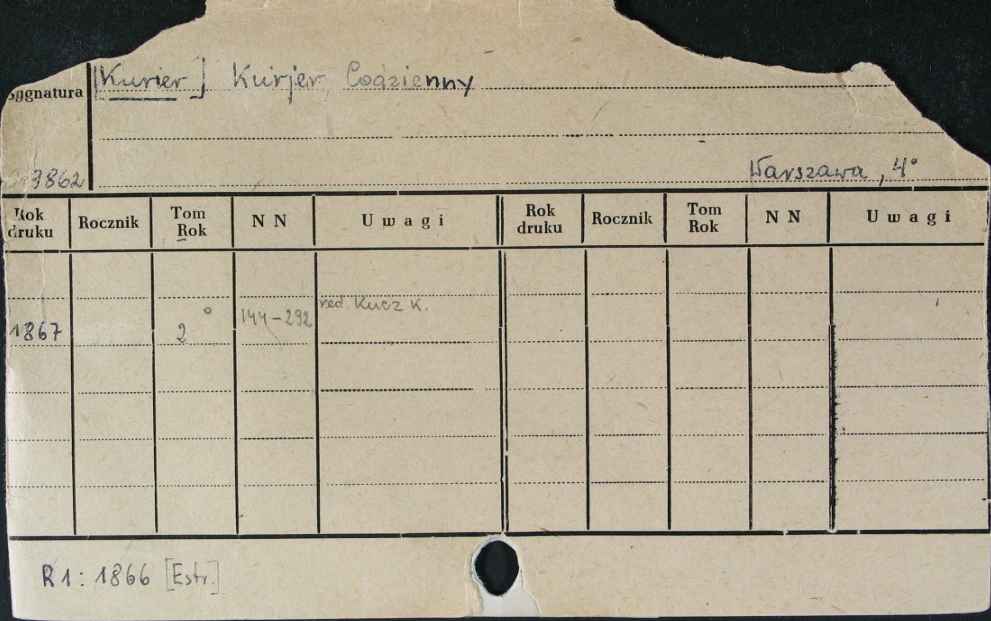 [Kurier] Kurjer Codzienny
Sygnatura
3862
Warszawa, 4°
Rok druku Rocznik Tom Rok NN Uwagi Rok druku Rocznik Tom Rok NN Uwagi
red. Kucz K.
1867 2° 144-292
R1: 1866 [Estr.]